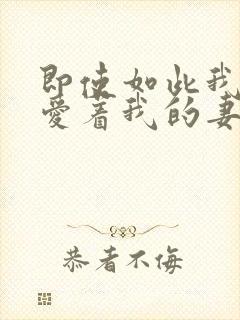 即使如此我
爱着我的妻
恭者不侮